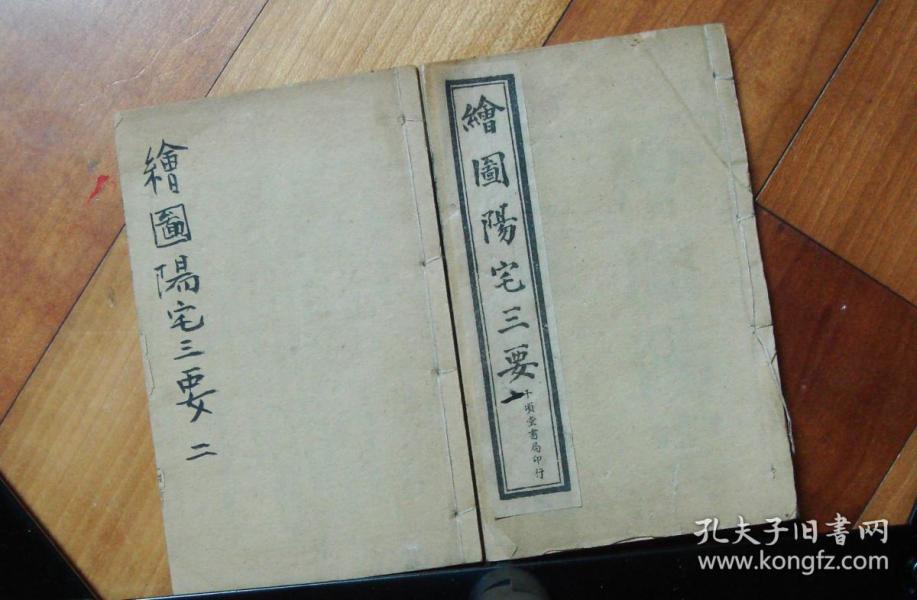 繪圖陽宅三要
一
千頃堂書局印行
繪圖陽宅三要 二
孔夫子旧书网
www.kongfz.com